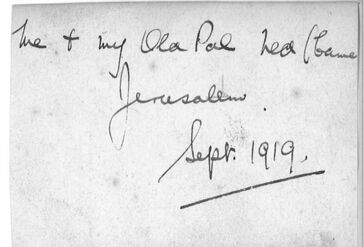 Me + my Old Pal Ned
Jerusalem.
Sept. 1919.